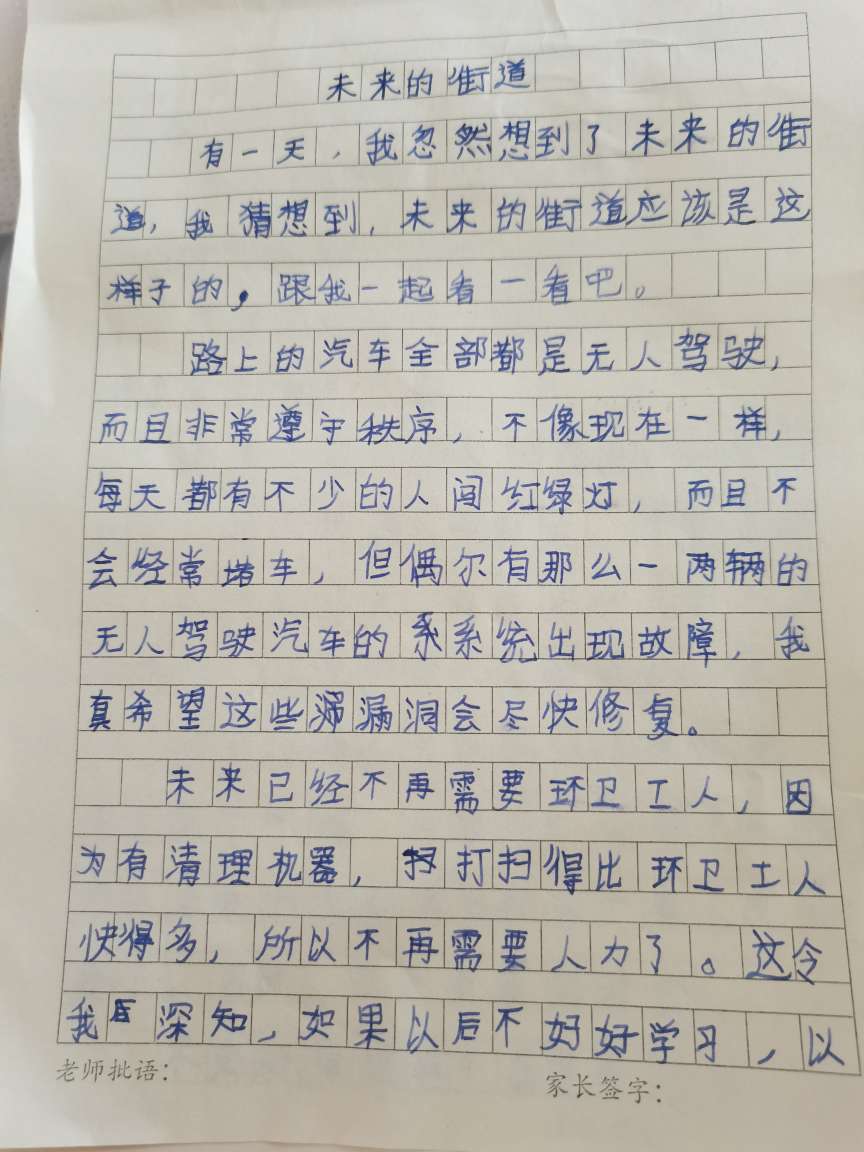 未来的街道
有一天，我忽然想到了未来的街
道，我猜想到，未来的街道应该是这
样子的，跟我一起看一看吧。
路上的汽车全部都是无人驾驶，
而且非常遵守秩序，不像现在一样，
每天都有不少的人闯红绿灯，而且不
会经常堵车，但偶尔有那么一两辆的
无人驾驶汽车的系系统出现故障，我
真希望这些漏漏洞会尽快修复。
未来已经不再需要环卫工人，因
为有清理机器，扫打扫得比环卫工人
快得多，所以不再需要人力了。这令
我深知，如果以后不好好学习，以
老师批语：
家长签字：